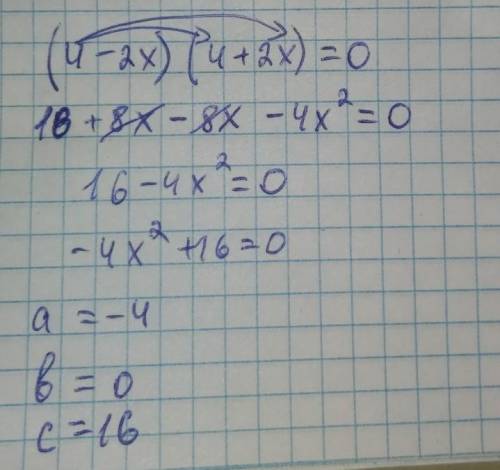 (4-2x)(4+2x)=0
16+8x-8x-4x²=0
16-4x²=0
-4x²+16=0
a=-4
b=0
c=16